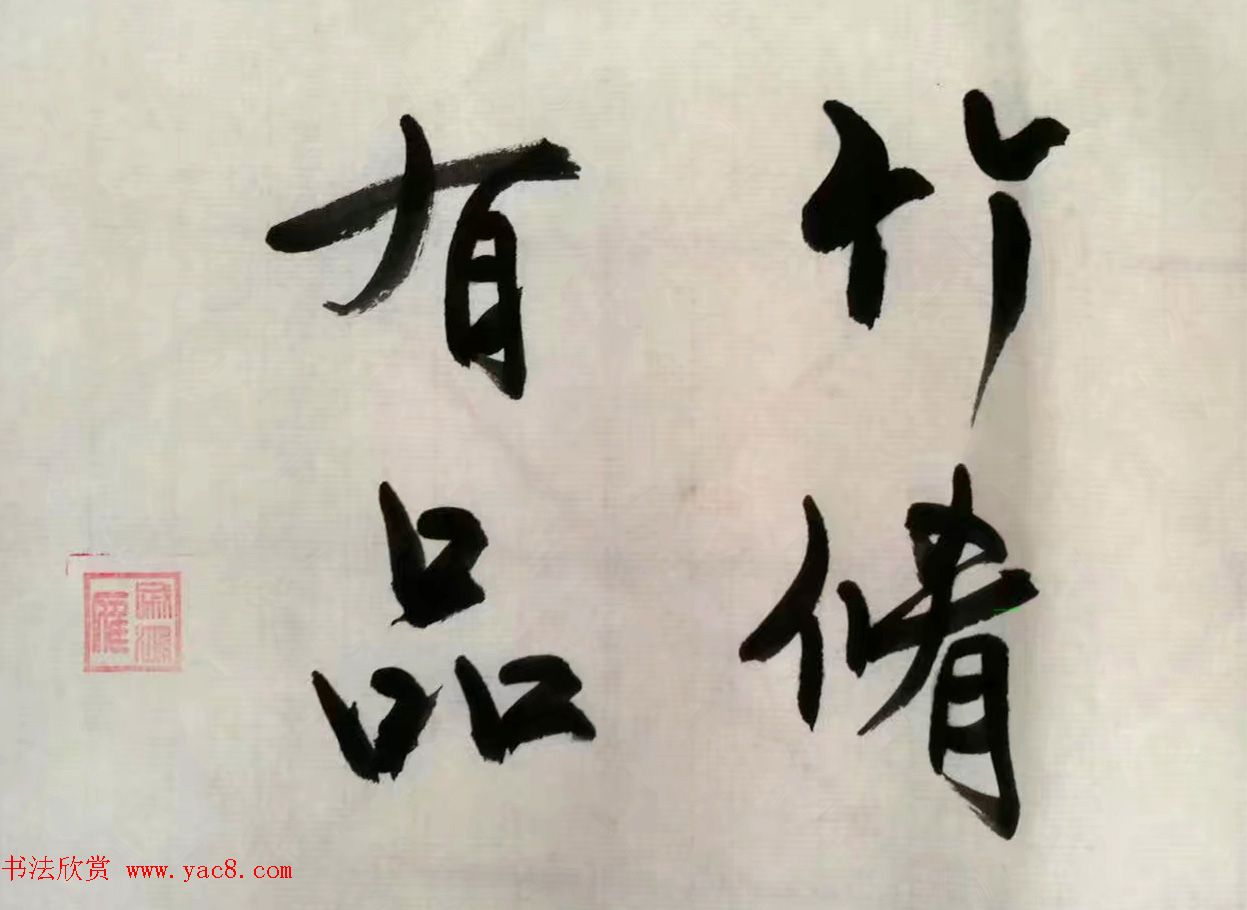 竹脩
有品
书法欣赏 www.yac8.com